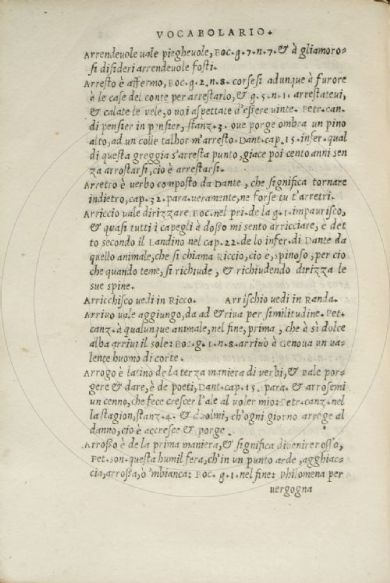 VOCABOLARIO.
Arrendeuole uale pieghevole, Boc. g. 7. n. 7. & à gliamoro-
si disideri arrendeuole fosti.
Arresto è affermo, Boc. g. 2. n. 8. corsesi adunque à furore
è le case del conte per arrestarlo, & g. 5. n. 1. arrestateui,
& calate le uele, o uoi aspettate d'essere uinte. Petr. can.
di pensier in pensier, stanz. 3. oue porge ombra un pino
alto, ad un colle talhor m'arresto. Dant. cap. 15. infer. qual
di questa greggia s'arresta punto, giace poi cento anni sen
za arrostarsi, cio è arrestarsi.
Arretro è verbo composto da Dante, che significa tornare
indietro, cap. 32. para. ueramente, ne forse tu t'arretri.
Arriccio vale dirizzare Boc. nel pri. de la g. 1. impaurisco,
& quasi tutti i capegli è dosso mi sento arricciare, e det
to secondo il Landino nel cap. 22. de lo infer. di Dante da
quello animale, che si chiama Riccio, cio e, spinoso, per cio
che quando teme, si richiude, & richiudendo dirizza le
sue spine.
Arricchisco uedi in Ricco. Arrischio uedi in Randa.
Arriuo uale aggiungo, da ad & riua per similitudine. Pet.
canz. à qualunque animale, nel fine, prima, che è sì dolce
alba arriui il sole: Boc. g. 1. n. 8. arriuò è Genoua un ua-
lente huomo di corte.
Arrogo è latino de la terza maniera di verbi, & uale por-
gere & dare, è de poeti, Dant. cap. 15. para. & arrosemi
un cenno, che fece crescer l'ale al voler mio: Petr. canz. nel
la stagion, stanz. 4. & duolmi, ch'ogni giorno arroge al
danno, cio è accresce & porge.
Arrosso è de la prima maniera, & significa diuenir rosso,
Pet. son. questa humil fera, ch'in un punto arde, agghiac-
cia, arrossa, ò 'mbianca: Boc. g. 1. nel fine: philomena per
uergogna